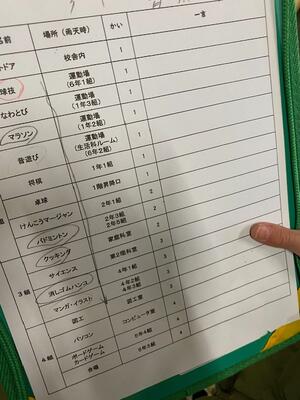 名前 場所（雨天時） かい 一言
ドア 校舎内 1
球技 運動場
（6年1組） 1
なわとび 運動場
（1年3組） 1
マラソン 運動場
（1年2組） 1
昔遊び 運動場
（生活科ルーム）
（6年2組） 1
将棋 1年1組 1
卓球 1階昇降口 1
けんこうマージャン 2年1組 2
バドミントン 2年3組
2年5組 2
クッキング 家庭科室 2
サイエンス 第2理科室 2
3組 消しゴムハンコ 4年1組 3
マンガ・イラスト 4年2組
4年3組 3
図工 図工室 3
4組 パソコン コンピュータ室 4
ボードゲーム
カードゲーム 6年4組 4
6年5組 4